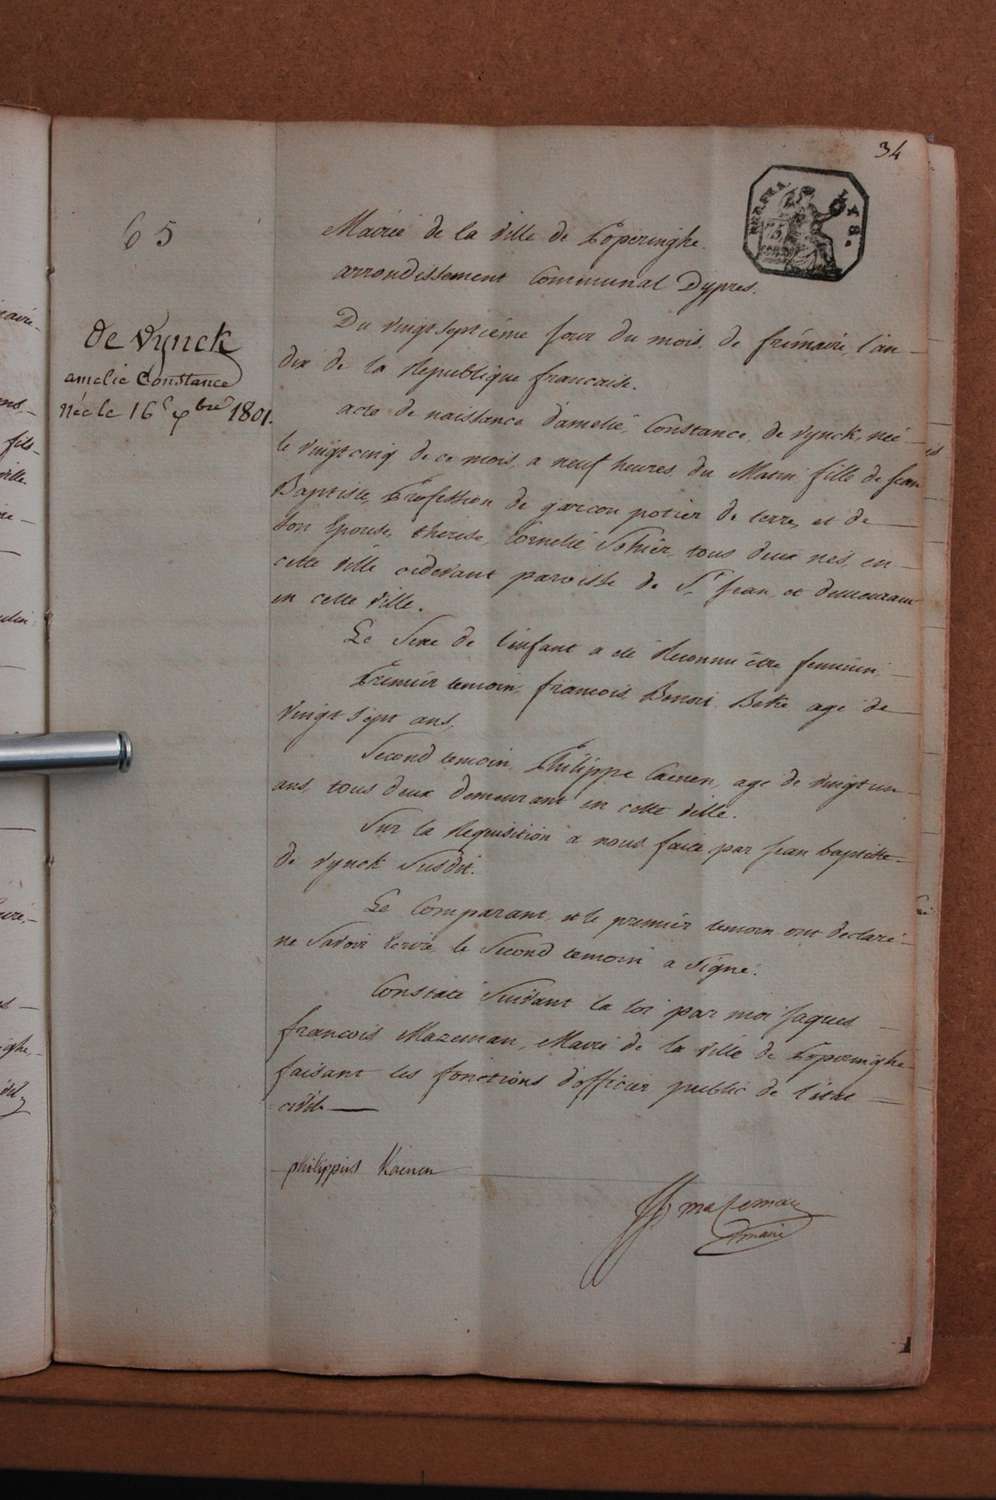 34
REP. FRA.
75
65
Mairie de la Ville de Poperinghe.
arrondissement Communal Dypres.
de Vynck
amelie Constance
née le 16 xbre 1801.
Du vingt septiéme jour du mois de frimaire, l'an
dix de la Republique francaise.
acte de naissance d'amelie, Constance, de Vynck, née
le vingt cinq de ce mois a neuf heures du Matin, fille de jean
Baptiste, Profession de garcon potier de terre, et de
son Epouse, therese, Cornelie Sohier, tous deux nés, en
cette ville cidevant paroisse de St jean, et demeurant
en cette ville.
Le Sexe de l'enfant a été Reconnu être feminin
Premier temoin, francois, Benoit, Bette agé de
vingt sept ans,
Second temoin, Philippe Caenen, age de vingt un
ans, tous deux demeurant en cette ville.
Sur la Requisition a nous faite par jean baptiste
de Vynck Susdit.
Le Comparant, et le premier temoin ont declaré
ne Savoir Ecrire, le Second temoin a Signé.
Constaté Suivant la loi par moi jaques
francois Mazeman, Maire de la ville de Poperinghe
faisant les fonctions d'officier public de l'état
civil
philippus Kaenen
Mazeman
maire